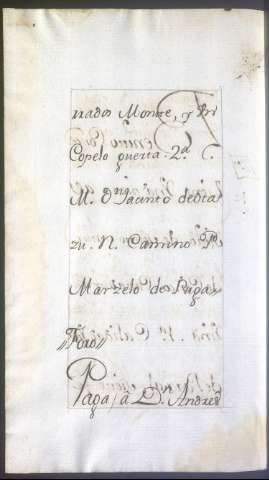 nados Monte, y Pri
Copelo querta. 2.ª C.
M. D.ⁿ Jacinto de Ota
zu. N. Camino R.
Marzelo de Riga
Foro
Paga, a D. Andres